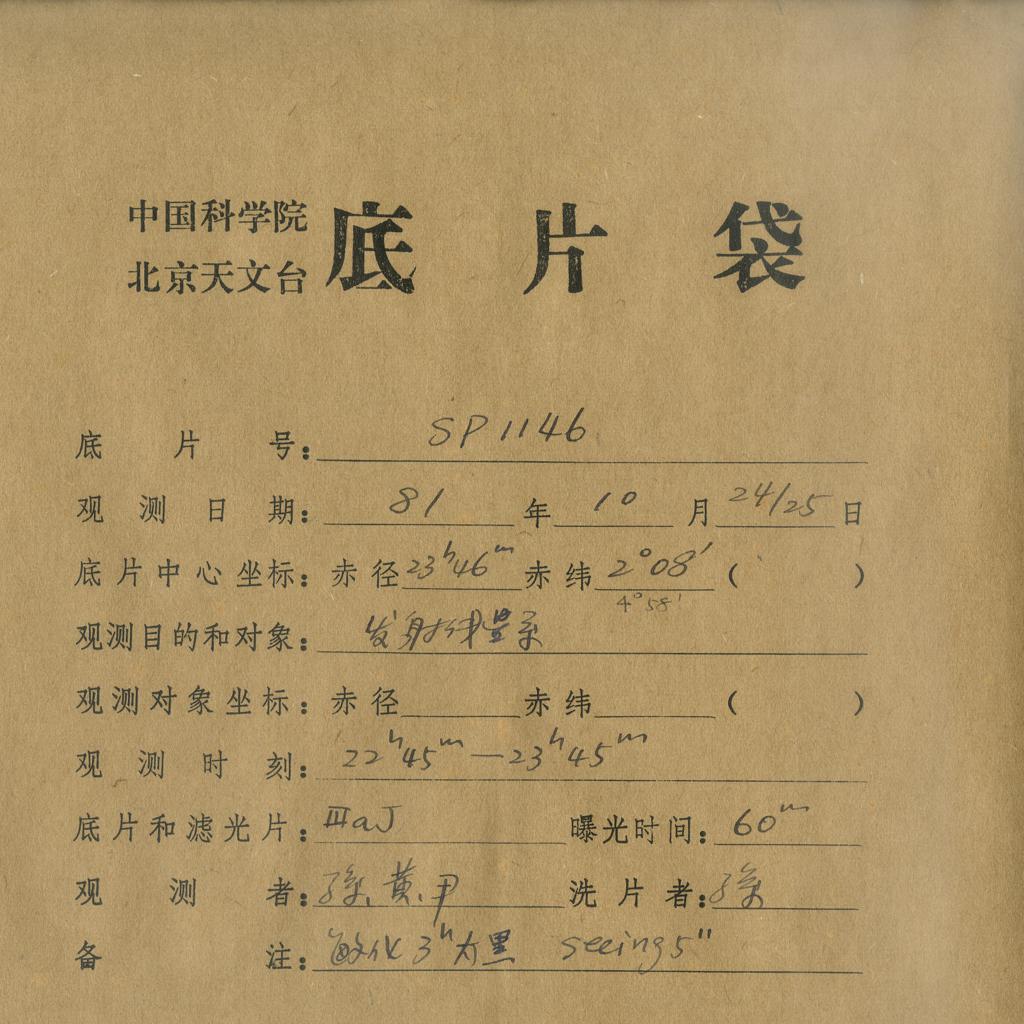 中国科学院
北京天文台
底片袋
底片号: SP1146
观测日期: 81年10月24/25日
底片中心坐标: 赤径23h46m赤纬2°08'( )
4°58'
观测目的和对象: 发射线星系
观测对象坐标: 赤径 赤纬 ( )
观测时刻: 22h45m—23h45m
底片和滤光片: ⅢaJ 曝光时间: 60m
观测者: 孙、黄、尹 洗片者: 孙
备注: 敏化3h太黑 seeing5"